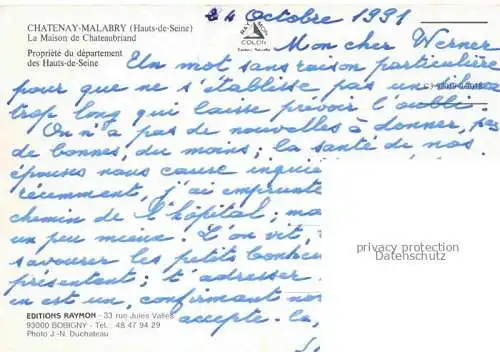 CHATENAY-MALABRY (Hauts-de-Seine)
La Maison de Chateaubriand
Propriété du département
des Hauts-de-Seine
RAYMON
COLOR
24 octobre 1991
Mon cher Werner
Un mot sans raison particulière
pour que ne s'établisse pas un silence
trop long qui laisse prévoir l'oubli
On n'a pas de nouvelles à donner, pas
de bonnes, du moins ; la santé de nos
épouses nous cause inquié
récemment, j'ai emprunté
chemin de l'hôpital ; ma
un peu mieux. L'on vit,
savourer les petits bonheu
présentent ; t'adresser
en est un, confirmant no
accepte. La,
privacy protection
Datenschutz
EDITIONS RAYMON - 33 rue Jules Vallès
93000 BOBIGNY - Tél.: 48 47 94 29
Photo J.-N. Duchateau